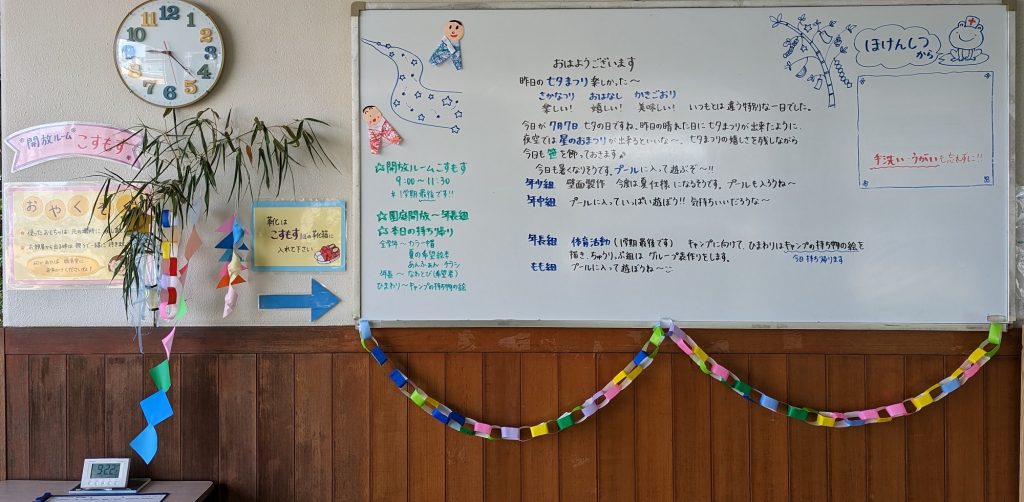 12
1
2
3
4
5
6
7
8
9
10
11
開放ルーム こすもす
おやくそく
使ったおもちゃは元の場所に
靴は
こすもす
入れて下さい
9:22
☆開放ルームこすもす
9:00〜11:30
＊1学期最後です!!
☆園庭開放〜年長組
☆本日の持ち帰り
全学年〜カラー帽
夏の希望絵本
あんふぁん チラシ
年長〜なわとび(希望者)
ひまわり〜キャンプの持ち物の絵
おはようございます
昨日の七夕まつり楽しかった〜
さかなつり おはなし かきごおり
楽しい! 嬉しい! 美味しい! いつもとは違う特別な一日でした。
今日が7月7日 七夕の日ですね。昨日の晴れた日に七夕まつりが出来たように、
夜空では星のおまつりが出来るといいな〜。七夕まつりの嬉しさを残しながら
今日も笹を飾っておきます♪
今日も暑くなりそうです。プールに入って遊ぶぞ〜!!
年少組 壁面製作 今度は夏仕様になるそうです。プールも入ろうね〜
年中組 プールに入っていっぱい遊ぼう!! 気持ちいいだろうな〜
年長組 体育活動(1学期最後です) キャンプに向けて、ひまわりはキャンプの持ち物の絵を
描き、ちゅうりっぷ組は グループ表作りをします。
今日持ち帰ります
もも組 プールに入って遊ぼうね〜
ほけんしつ
から
手洗い・うがいも忘れずに!!